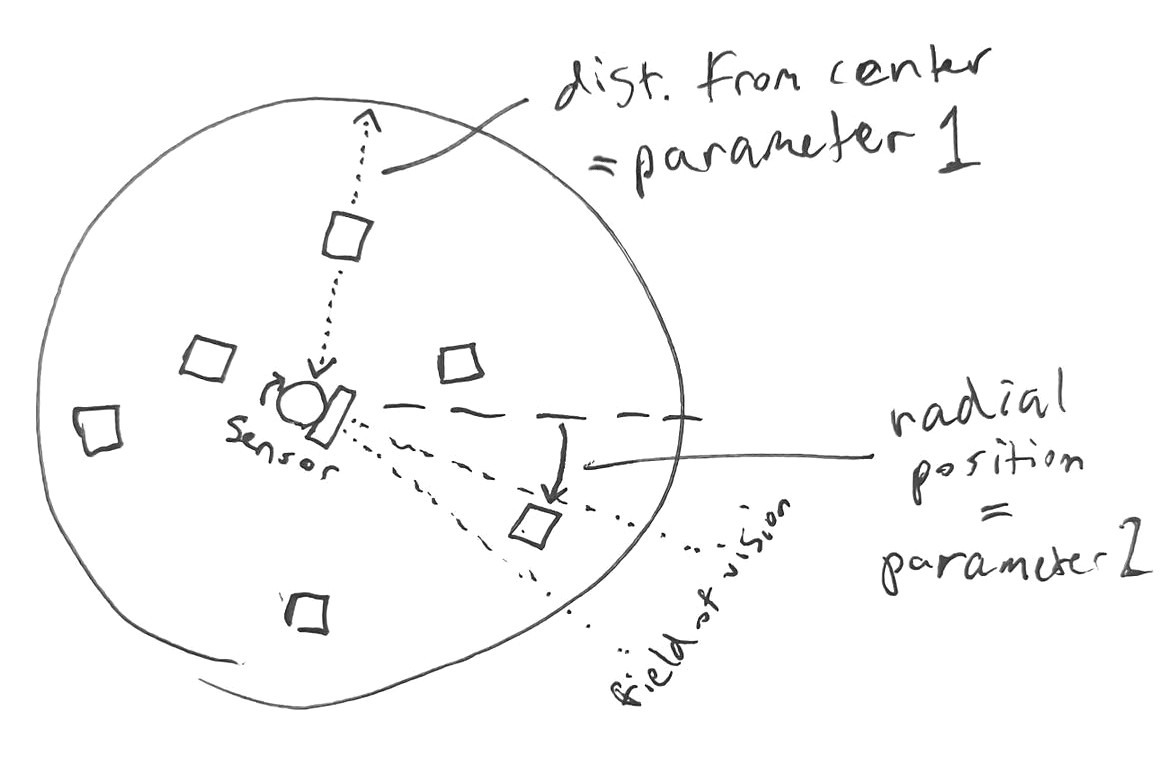 dist. from center
= parameter 1
sensor
radial
position
=
parameter 2
field of vision